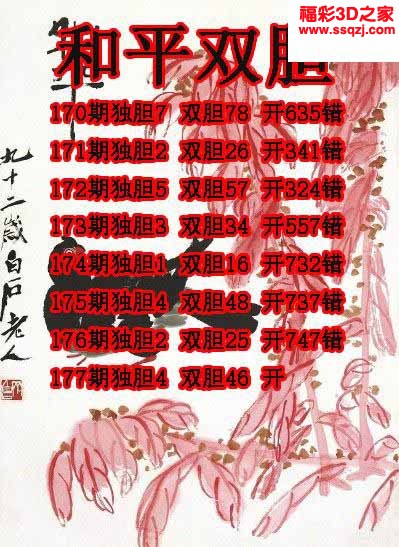 福彩3D之家
www.ssqzj.com
和平双胆
170期独胆7 双胆78 开635错
171期独胆2 双胆26 开341错
172期独胆5 双胆57 开324错
173期独胆3 双胆34 开557错
174期独胆1 双胆16 开732错
175期独胆4 双胆48 开737错
176期独胆2 双胆25 开747错
177期独胆4 双胆46 开
九十二岁白石老人